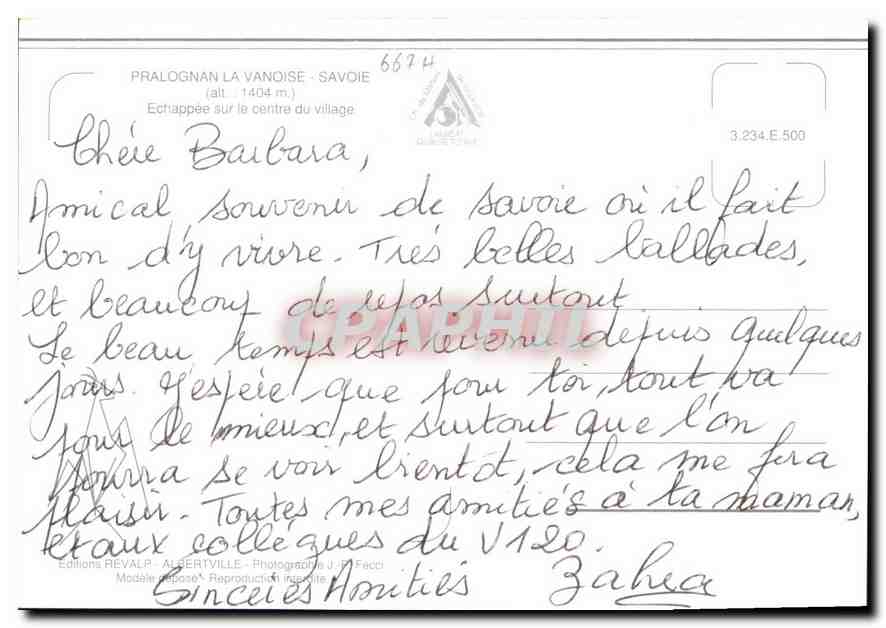 667H
PRALOGNAN LA VANOISE - SAVOIE
(alt. : 1404 m.)
Echappée sur le centre du village
3.234.E.500
Chére Barbara,
Amical souvenir de savoie où il fait
bon d'y vivre. Trés belles ballades,
et beaucoup de repos surtout
Le beau temps est revenu depuis quelques
jours. J'espére que pour toi, tout va
pour le mieux, et surtout que l'on
pourra se voir bientôt, cela me fera
plaisir. Toutes mes amitiés à ta maman,
et aux collégues du V120.
Sincéres Amitiés Zahra
CPARHTI
Editions REVALP - ALBERTVILLE - Photographie J.-P. Fecci
Modèle déposé - Reproduction interdite